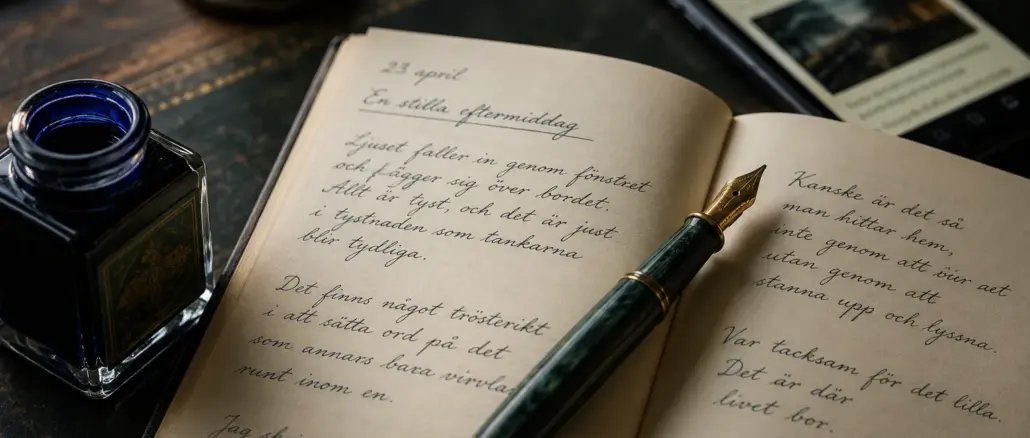 23 april
En stilla eftermiddag
Ljuset faller in genom fönstret
och fägger sig över bordet.
Allt är tyst, och det är just
i tystnaden som tankarna
blir tydliga.
Det finns något trösterikt
i att sätta ord på det
som annars bara virvlar
runt inom en.
Jag
Kanske är det så
man hittar hem,
inte genom att
utan genom att
stanna upp och lyssna.
Var tacksam för det lilla.
Det är där
livet bor.